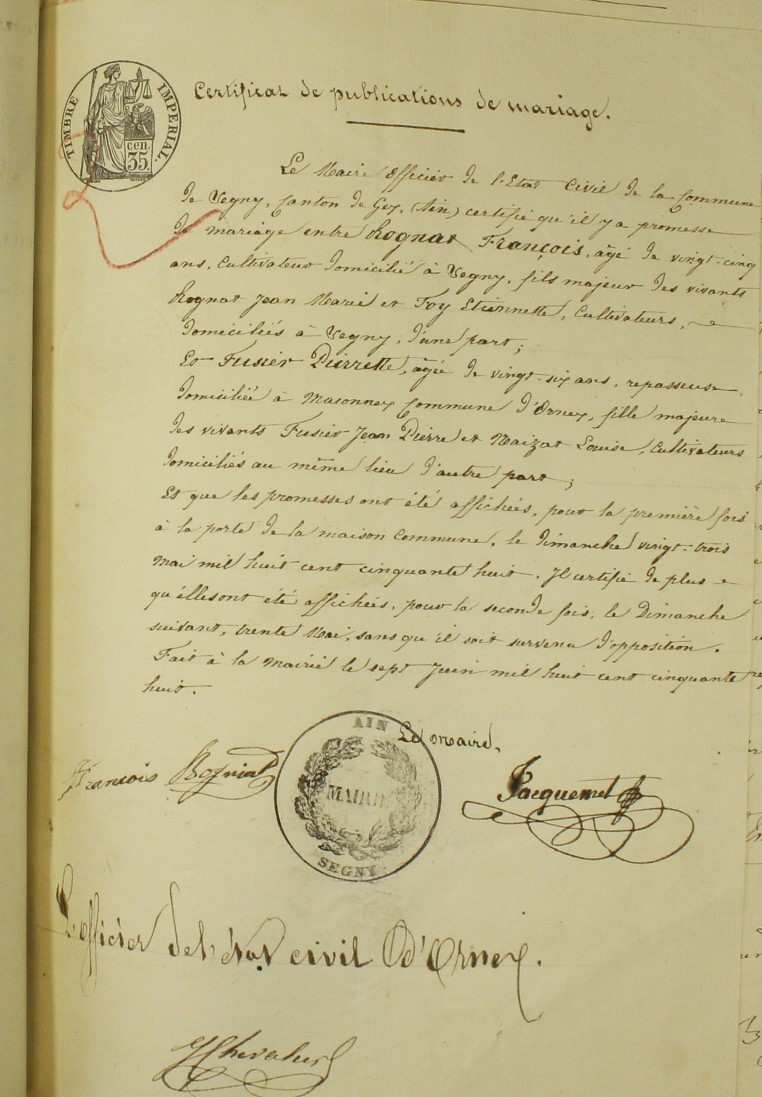 TIMBRE IMPERIAL.
cen.
35
Certificat de publications de mariage.
Le Maire Officier de l'Etat Civil de la Commune
de Segny, Canton de Gex, (Ain) certifie qu'il y a promesse
de mariage entre Rognat François, âgé de vingt-cinq
ans, Cultivateur domicilié à Segny, fils majeur des vivants
Rognat Jean Marie et Foy Etiennette, Cultivateurs,
domiciliés à Segny, d'une part;
Et Fusier Pierrette, âgée de vingt-six ans, repasseuse,
domiciliée à Maconnex Commune d'Ornex, fille majeure
des vivants Fusier Jean Pierre et Maizat Louise, Cultivateurs
domiciliés au même lieu d'autre part;
Et que les promesses ont été affichées, pour la première fois
à la porte de la maison Commune, le dimanche vingt-trois
mai mil huit cent cinquante huit. Il certifie de plus
qu'elles ont été affichées, pour la seconde fois, le Dimanche
suivant, trente Mai, sans qu'il soit survenu d'opposition.
Fait à la Mairie le sept Juin mil huit cent cinquante
huit.
Le maire,
François Rognat
AIN
MAIRIE
SEGNY
Jacquemet
L'officier de l'état civil d'Ornex.
Chevalier